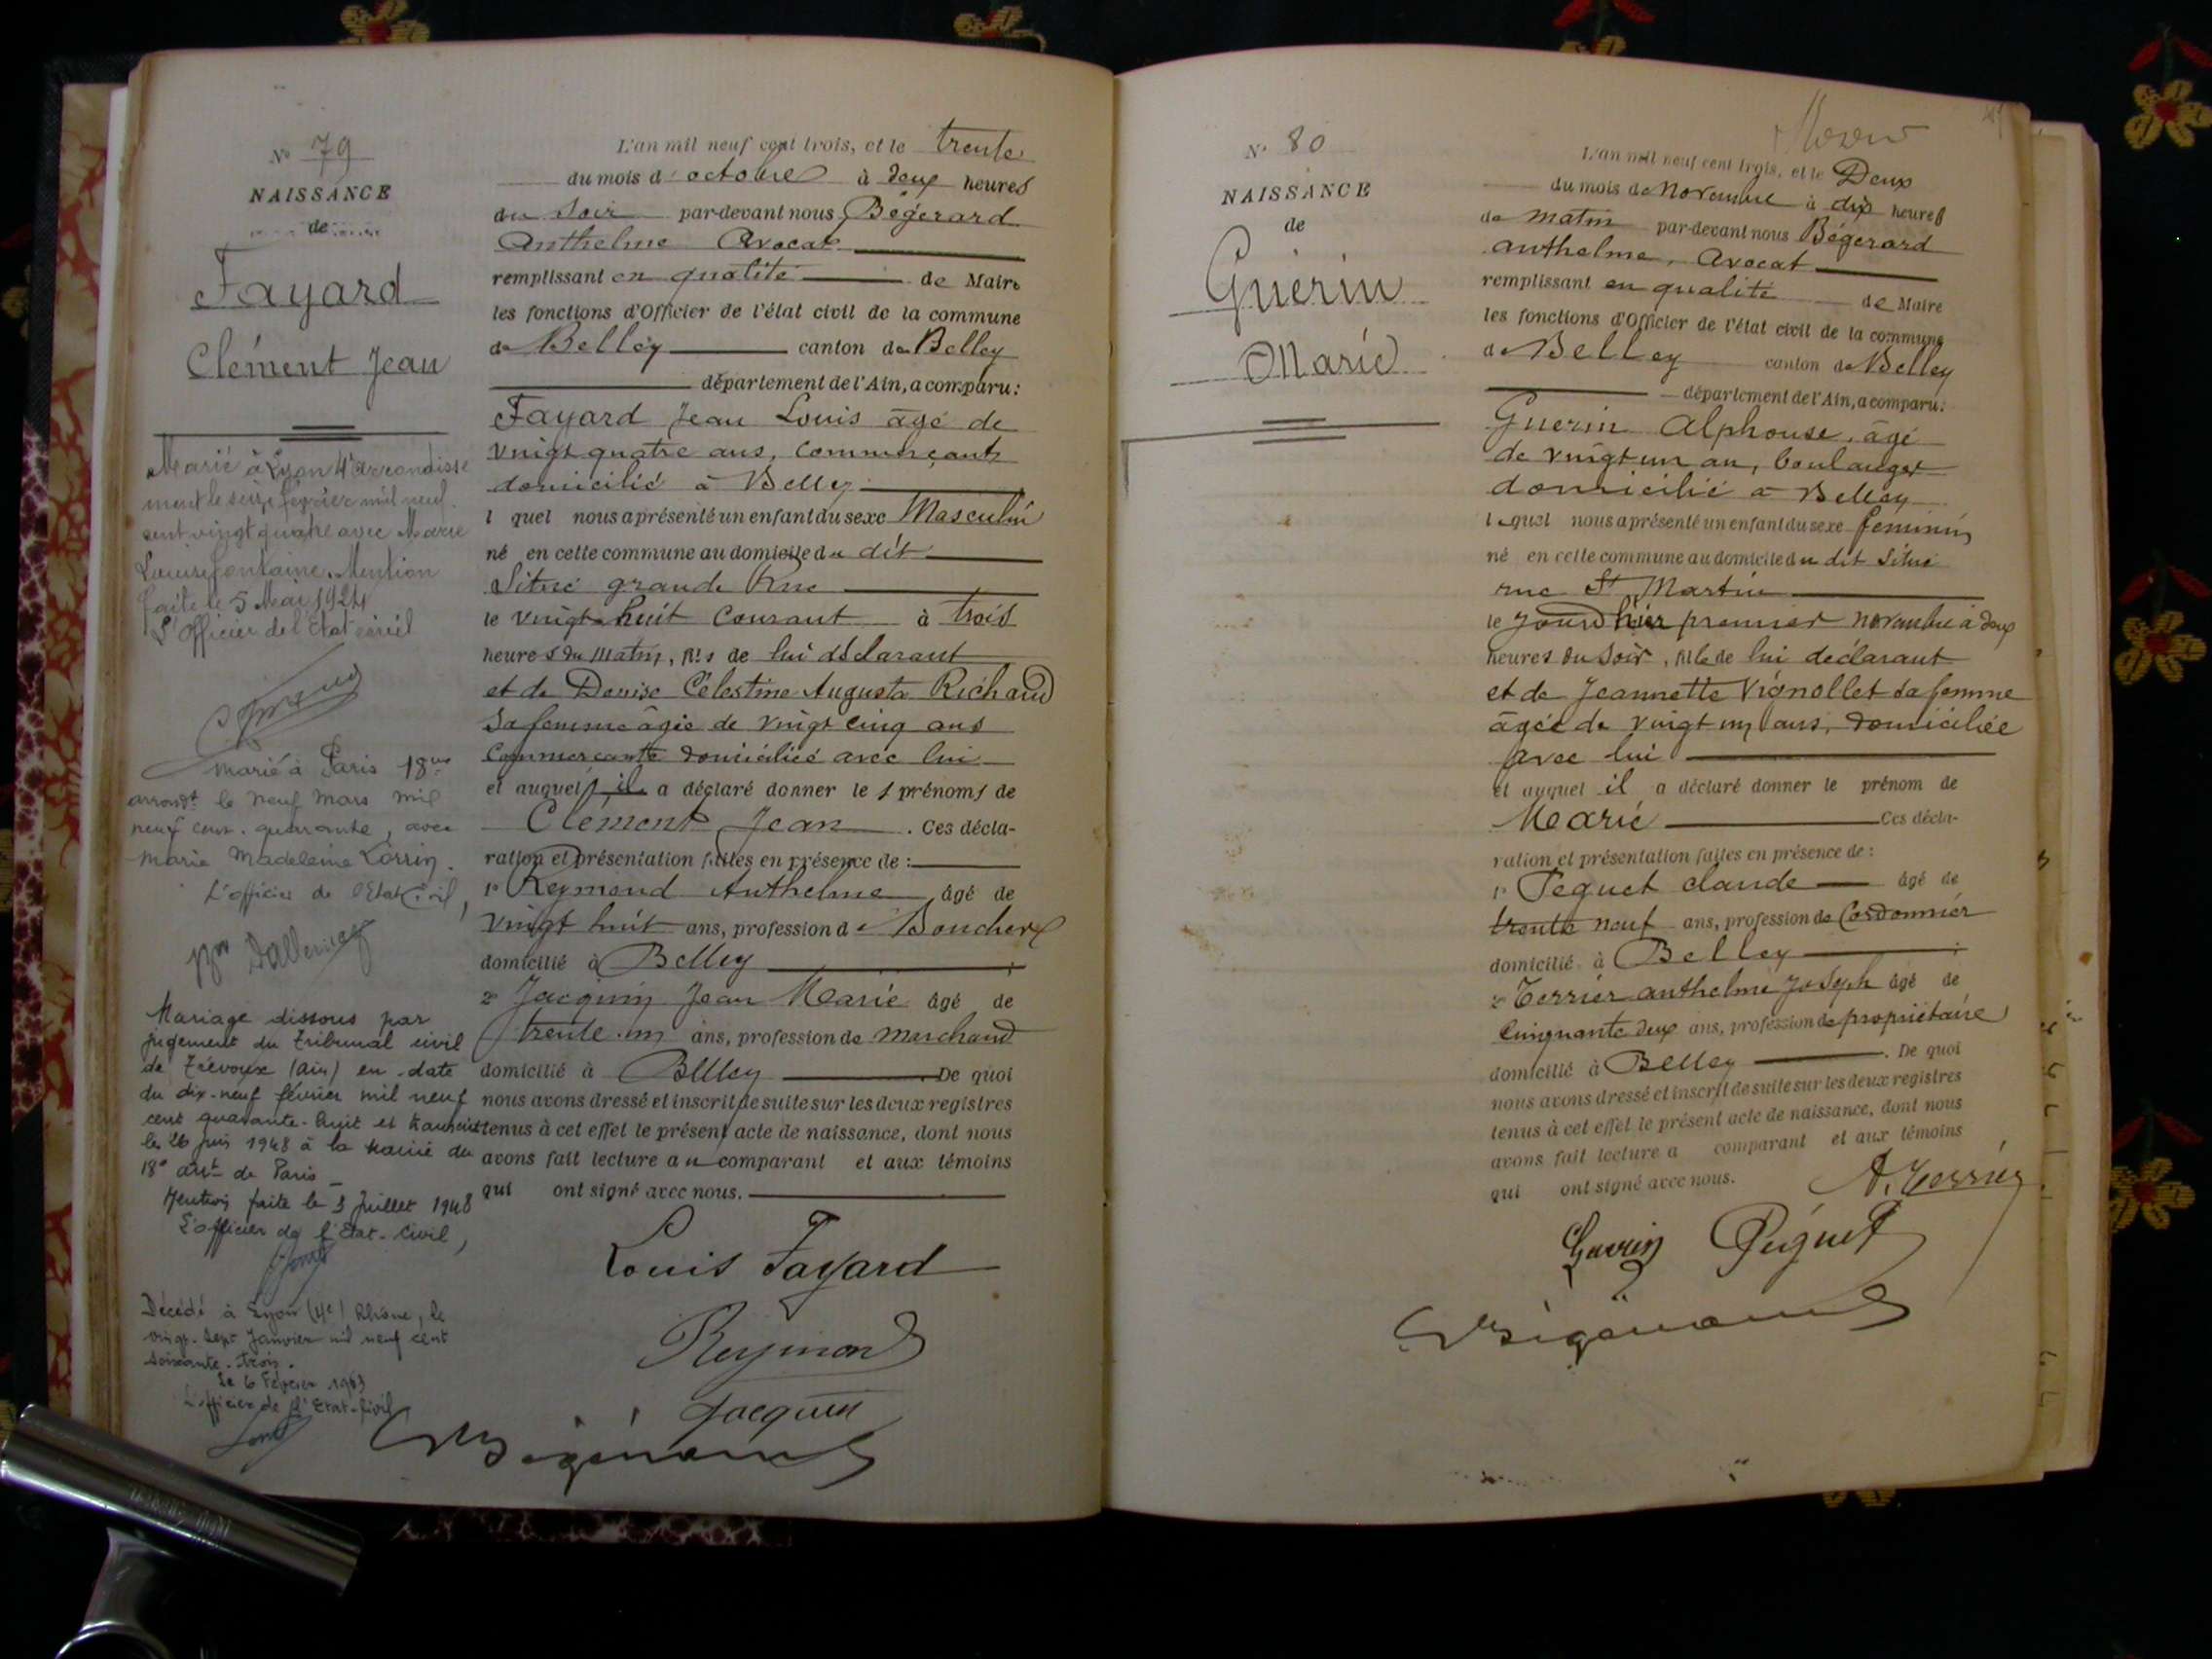 N° 79
NAISSANCE
de
Fayard
Clément Jean
Marié à Lyon 4e arrondisse
ment le seize février mil neuf
cent vingt quatre avec Marie
Louise Fontaine. Mention
faite le 5 Mai 1924
L'Officier de l'Etat civil
marié à Paris 18me
arrondt le neuf mars mil
neuf cent quarante, avec
Marie Madeleine Lorrin.
L'officier de l'Etat Civil,
Mariage dissous par
jugement du Tribunal civil
de Trévoux (Ain) en date
du dix-neuf février mil neuf
cent quarante-huit et transcrit
le 26 juin 1948 à la mairie du
18e arrt de Paris_
Mention faite le 3 Juillet 1948
L'officier de l'Etat-Civil,
Décédé à Lyon (4e) Rhône, le
vingt-sept Janvier mil neuf cent
soixante-trois.
Le 6 Février 1963
L'officier de l'Etat-Civil
L'an mil neuf cent trois, et le trente
du mois d'octobre à deux heures
du soir par-devant nous Bégerard
Anthelme Avocat
remplissant en qualité de Maire
les fonctions d'Officier de l'état civil de la commune
de Belley canton de Belley
département de l'Ain, a comparu:
Fayard Jean Louis âgé de
vingt quatre ans, commerçant
domicilié à Belley
lequel nous a présenté un enfant du sexe Masculin
né en cette commune au domicile du dit
Situé grande Rue
le vingt-huit courant à trois
heures du matin, fils de lui déclarant
et de Denise Célestine Augusta Richard
sa femme âgée de vingt cinq ans
commerçante domiciliée avec lui
et auquel il a déclaré donner les prénoms de
Clément Jean. Ces décla-
ration et présentation faites en présence de:
1° Reymond Anthelme âgé de
vingt huit ans, profession de Boucher
domicilié à Belley;
2° Jacquin Jean Marie âgé de
trente un ans, profession de marchand
domicilié à Belley. De quoi
nous avons dressé et inscrit de suite sur les deux registres
tenus à cet effet le présent acte de naissance, dont nous
avons fait lecture au comparant et aux témoins
qui ont signé avec nous.
Louis Fayard
Reymond
Jacquin
Bégerard
N° 80
NAISSANCE
de
Guérin
Marie
L'an mil neuf cent trois, et le Deux
du mois de Novembre à dix heures
de matin par-devant nous Bégerard
anthelme, Avocat
remplissant en qualité de Maire
les fonctions d'Officier de l'état civil de la commune
de Belley canton de Belley
département de l'Ain, a comparu:
Guerin Alphonse, âgé
de vingt un an, boulanger
domicilié à Belley
lequel nous a présenté un enfant du sexe feminin
né en cette commune au domicile du dit situé
rue St Martin
le jourd'hier premier novembre à deux
heures du soir, fille de lui déclarant
et de Jeannette Vignollet sa femme
âgée de vingt un ans, domiciliée
avec lui
et auquel il a déclaré donner le prénom de
Marie Ces décla-
ration et présentation faites en présence de:
1° Peguet claude âgé de
trente neuf ans, profession de Cordonnier
domicilié à Belley;
2° Terrier anthelme Joseph âgé de
cinquante deux ans, profession de propriétaire
domicilié à Belley. De quoi
nous avons dressé et inscrit de suite sur les deux registres
tenus à cet effet le présent acte de naissance, dont nous
avons fait lecture a comparant et aux témoins
qui ont signé avec nous.
A. Terrier
Guerin Péguet
Bégerard